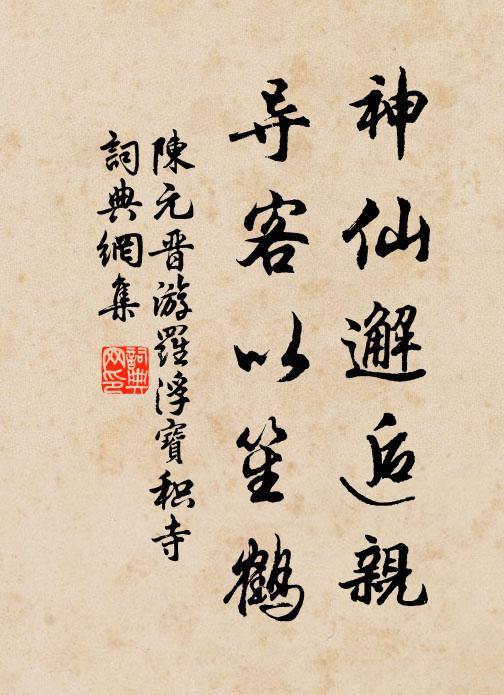 神仙邂逅親
导客以笙鶴
陳元晋游羅浮寶积寺
詞典網集
詞典網印